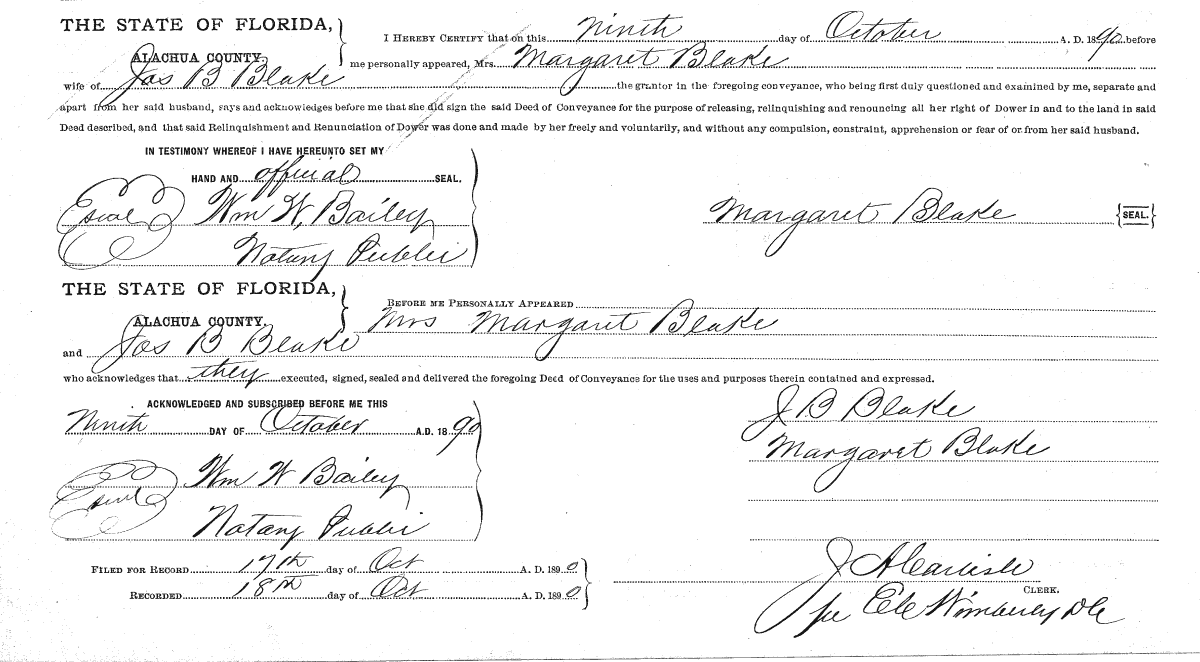 THE STATE OF FLORIDA,
ALACHUA COUNTY.
I HEREBY CERTIFY that on this Ninth day of October A. D. 1890 before
me personally appeared, Mrs. Margaret Blake
wife of Jas B Blake the grantor in the foregoing conveyance, who being first duly questioned and examined by me, separate and
apart from her said husband, says and acknowledges before me that she did sign the said Deed of Conveyance for the purpose of releasing, relinquishing and renouncing all her right of Dower in and to the land in said
Deed described, and that said Relinquishment and Renunciation of Dower was done and made by her freely and voluntarily, and without any compulsion, constraint, apprehension or fear of or from her said husband.
IN TESTIMONY WHEREOF I HAVE HEREUNTO SET MY
HAND AND official SEAL.
Wm W. Bailey
Notary Public
Margaret Blake {SEAL.}
THE STATE OF FLORIDA,
ALACHUA COUNTY.
BEFORE ME PERSONALLY APPEARED
Mrs Margaret Blake
and Jas B Blake
who acknowledges that they executed, signed, sealed and delivered the foregoing Deed of Conveyance for the uses and purposes therein contained and expressed.
ACKNOWLEDGED AND SUBSCRIBED BEFORE ME THIS
Ninth DAY OF October A.D. 1890
Wm W Bailey
Notary Public
J B Blake
Margaret Blake
FILED FOR RECORD 17th day of Oct A. D. 1890
RECORDED 18th day of Oct A. D. 1890
J A Carlisle
CLERK.
per Wimberly DC